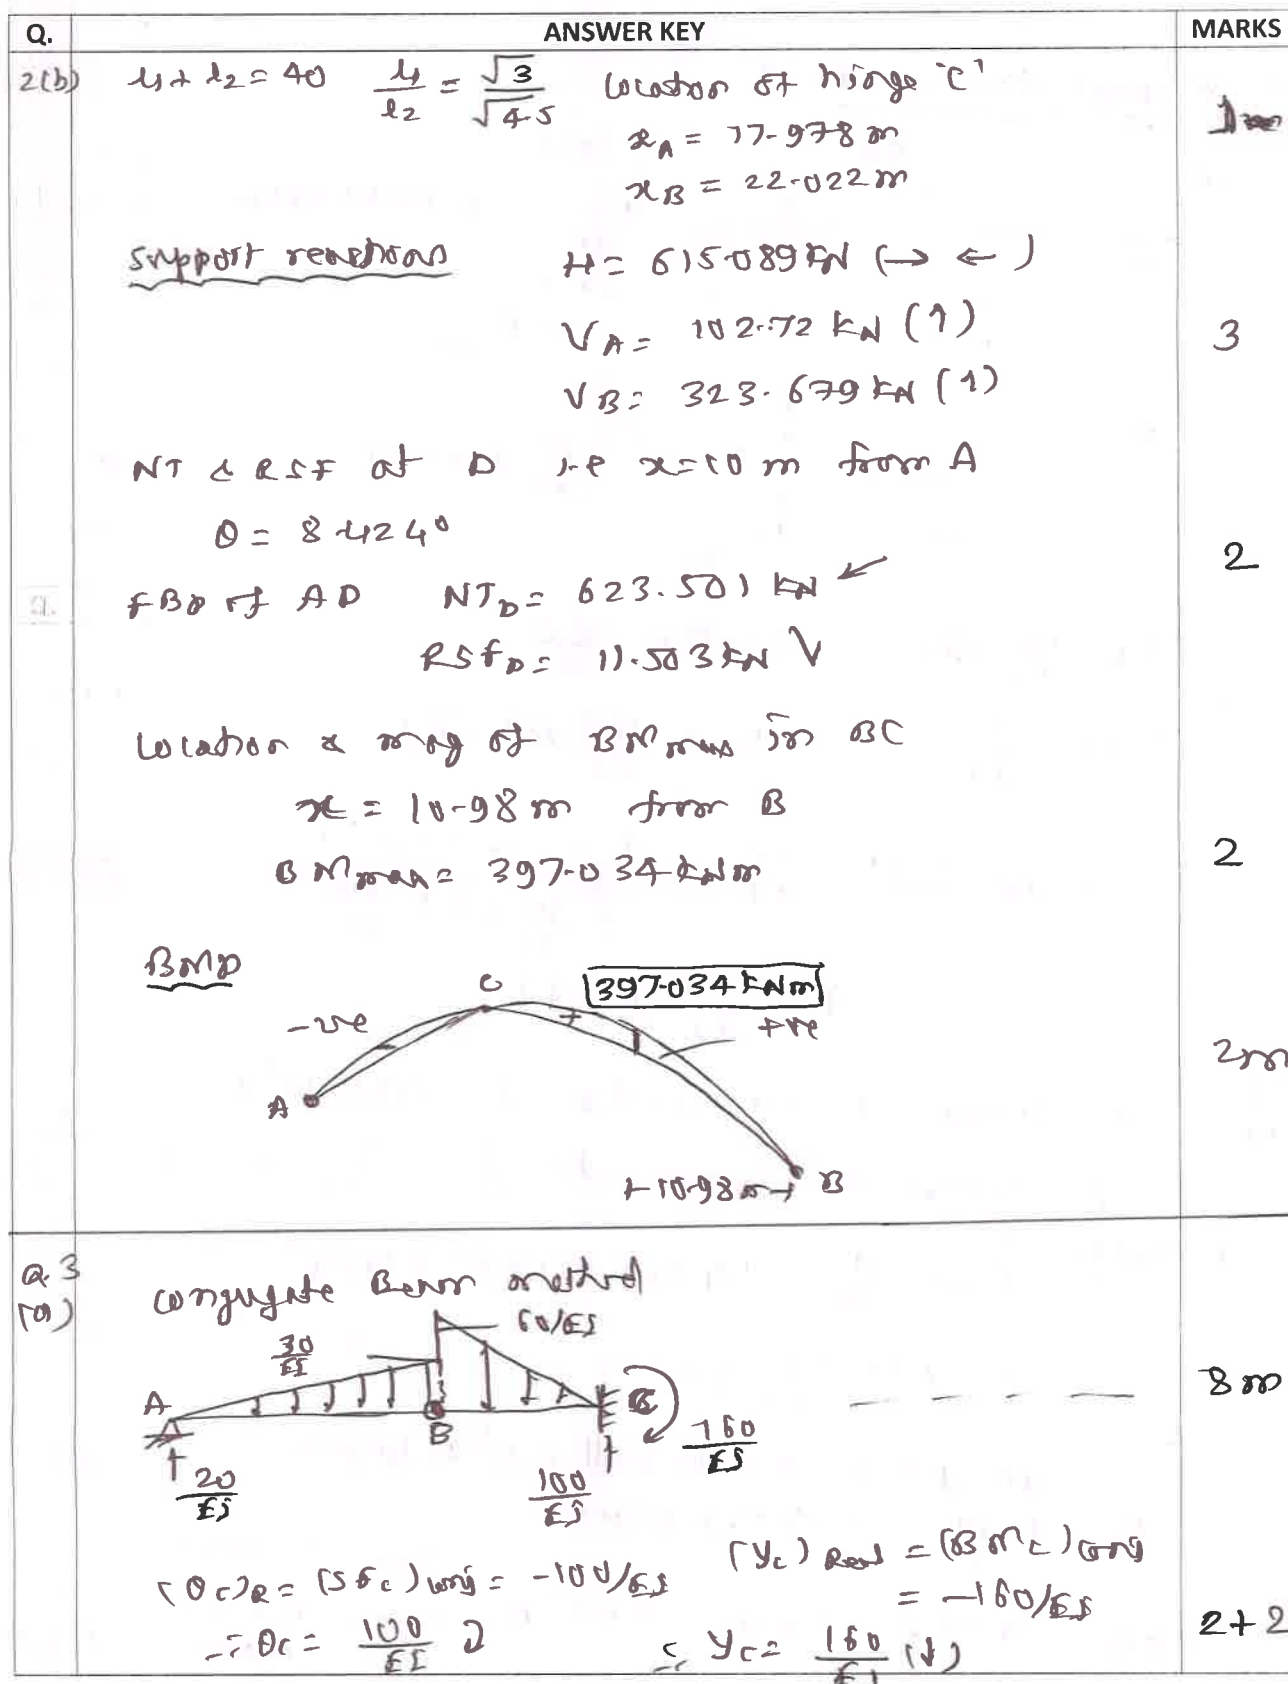 Q. ANSWER KEY MARKS
2(b) l1 + l2 = 40 l1/l2 = √3/√4.5 location of hinge 'C' 1m
xA = 17.978 m
xB = 22.022 m
support reactions H = 615.089 kN (→ ←)
VA = 102.72 kN (↑) 3
VB = 323.679 kN (↑)
NT & RSF at D i.e x=10 m from A
θ = 8.424° 2
FBD of AD NTD = 623.501 kN ↙
RSFD = 11.503 kN
location & mag of BMmax in BC
x = 10.98 m from B
BMmax = 397.034 kNm 2
BMD
C 397.034 kNm
-ve + +ve 2m
-
A
10.98 m B
Q.3 (a) conjugate Beam method
60/EI
30/EI
A B C 8m
160/EI
20/EI 100/EI
(θc)R = (SFc)conj = -100/EI (yc) Real = (BMc)conj
= -160/EI
∴ θc = 100/EI ∴ yc = 160/EI (↓) 2+2